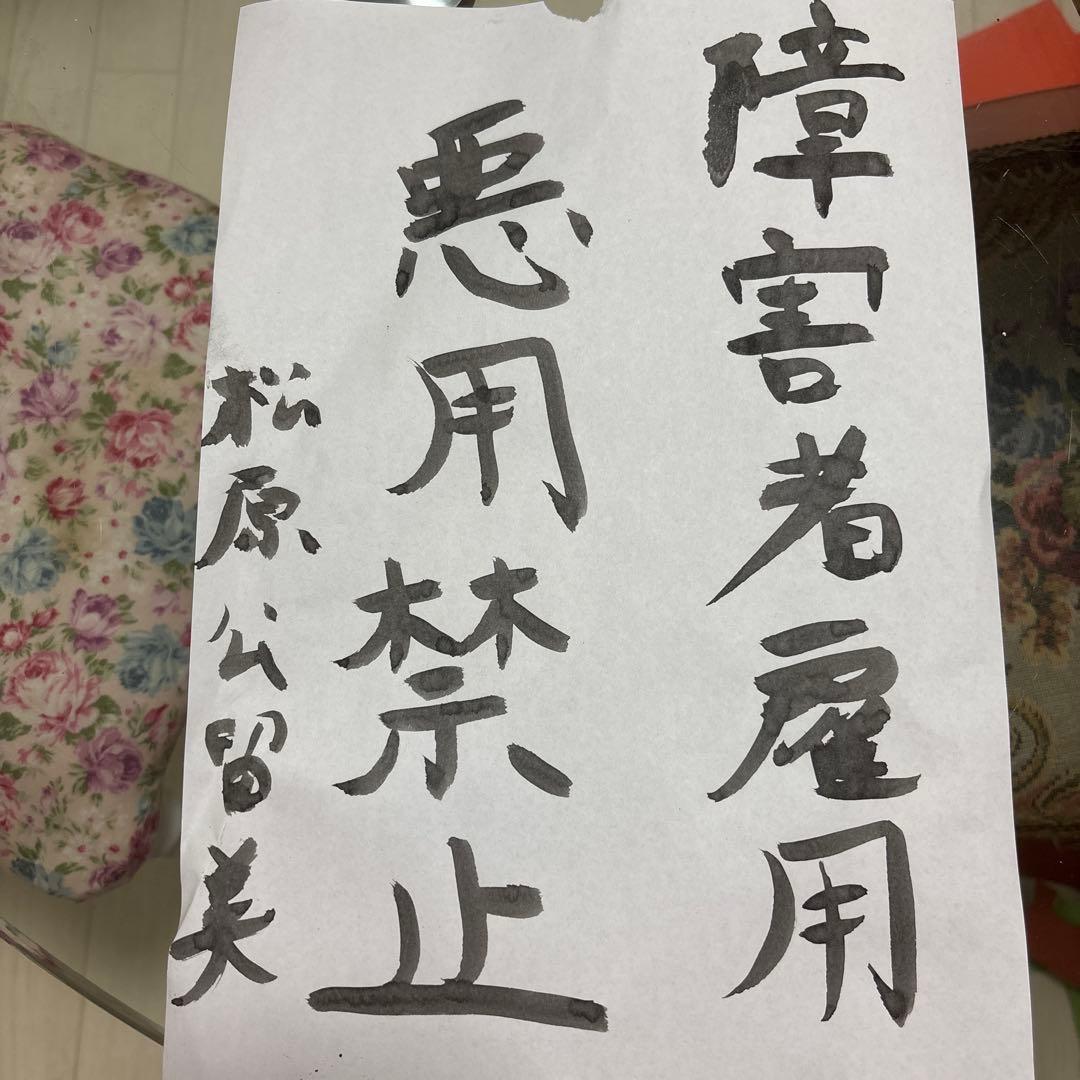 障害者雇用
悪用禁止
松原公留美